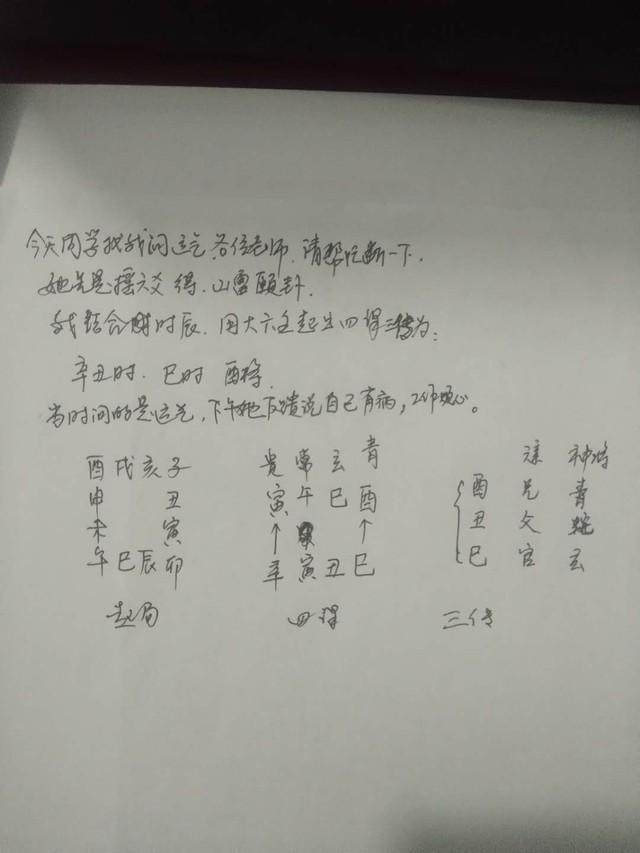 今天同学找我问运气 各位老师,请帮忙断一下,
她先是摇六爻 得,山雷颐卦.
我结合时辰,用大六壬起出四课三传为:
辛丑时.巳时 酉将
当时问的是运气,下午她反馈说自己有病,担心。
酉 戌 亥 子
申 丑
未 寅
午 巳 辰 卯
贵 常 玄 青
寅 午 巳 酉
↑ ↑
辛 寅 丑 巳
神将
酉 兄 青
丑 父 蛇
巳 官 玄
起局 四课 三传